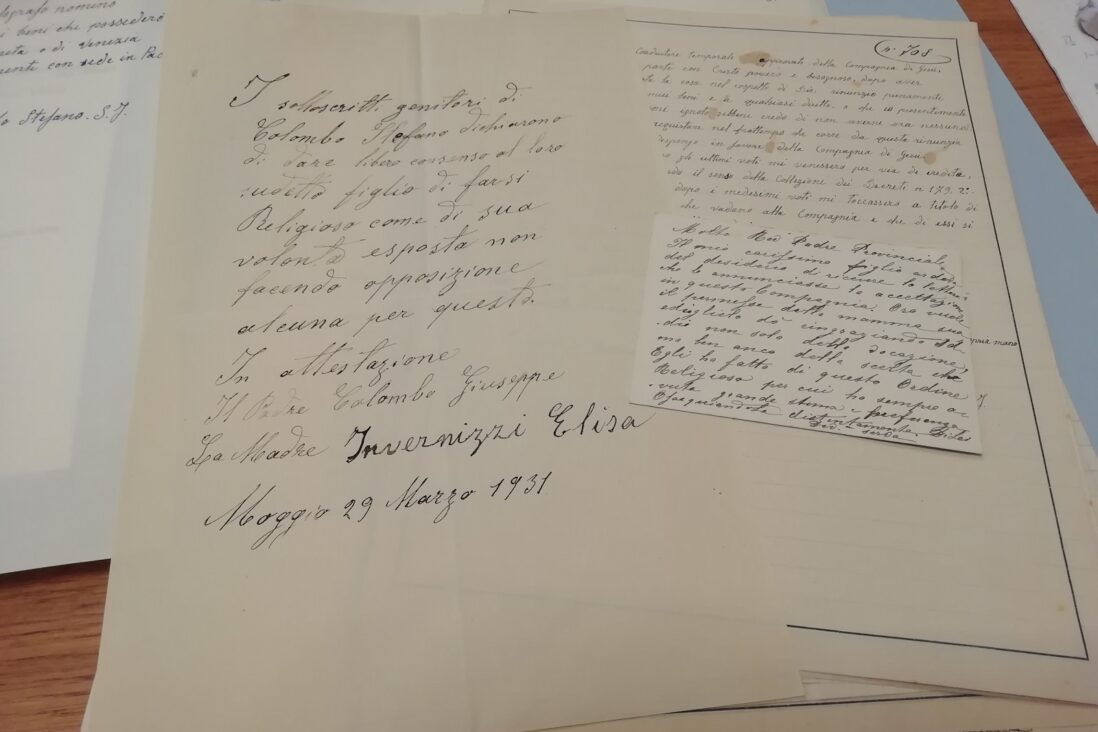 dografo nomino
i beni che possederò
neta o di Venezia
mente con sede in Pa
lo Stefano. S.J.
I sottoscritti genitori di
Colombo Stefano dichiarono
di dare libero consenso al loro
sudetto figlio di farsi
Religioso come di sua
volontà esposta non
facendo opposizione
alcuna per questo.
In attestazione
Il Padre Colombo Giuseppe
La Madre Invernizzi Elisa
Moggio 29 Marzo 1931
n. 708
Coadiutore temporale approvato della Compagnia di Gesù,
parte con Cristo povero e disagioso, dopo aver
la cosa nel cospetto di Dio, rinunzio pienamente
miei beni e a qualsiasi diritto, o che io presentemente
ignori sebbene credo di non averne ora nessuno
acquistare nel frattempo che corre da questa rinunzia
dispongo in favore della Compagnia di Gesù
gli ultimi voti mi venissero per via di eredità,
il senso della Collezione dei Decreti n 179. 2°
dopo i medesimi voti mi toccassero a titolo di
che vadano alla Compagnia e che di essi si
Molto Rev Padre Provinciale,
Il mio carissimo figlio
del desiderio di ricevere la lettera
che le annunciasse la accettazione
in questa Compagnia. Ora vuole
il permesso della mamma sua
ed io glielo dò ringraziando Id-
dio non solo della vocazione,
ma ben anco della scelta che
Egli ha fatto di questo Ordine
Religioso per cui ho sempre a-
vuta grande stima e preferenza.
Ossequiandola distintamente
serva
pria mano
J.